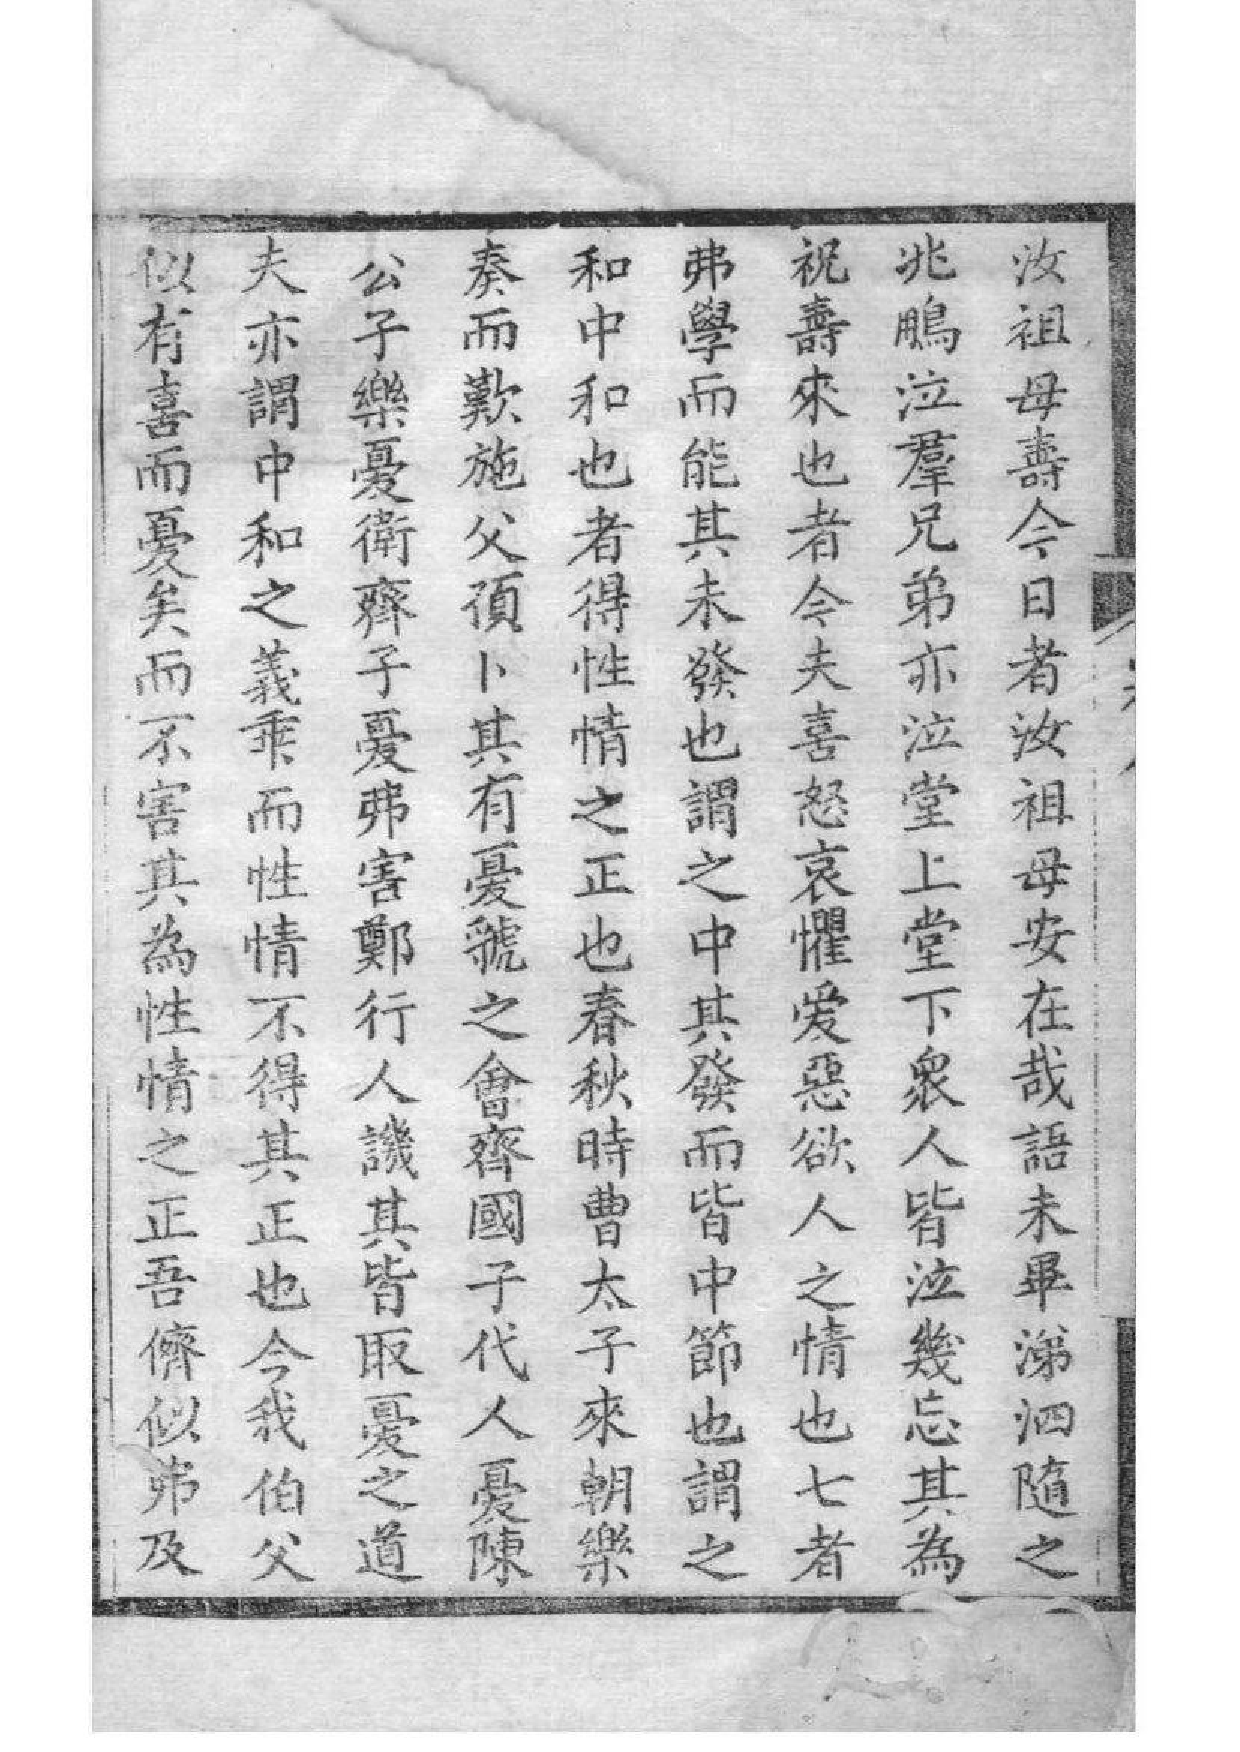 汝祖母壽今日者汝祖母安在哉語未畢涕泗隨之
兆鵰泣羣兄弟亦泣堂上堂下衆人皆泣幾忘其為
祝壽來也者今夫喜怒哀懼爱惡欲人之情也七者
弗學而能其未發也謂之中其發而皆中節也謂之
和中和也者得性情之正也春秋時曹太子來朝樂
奏而歎施父預卜其有憂虢之會齊國子代人憂陳
公子樂憂衛齊子憂憂弗害鄭行人譏其皆取憂之道
夫亦謂中和之義乖而性情不得其正也今我伯父
似有喜而憂矣而不害其為性情之正吾儕似弗及